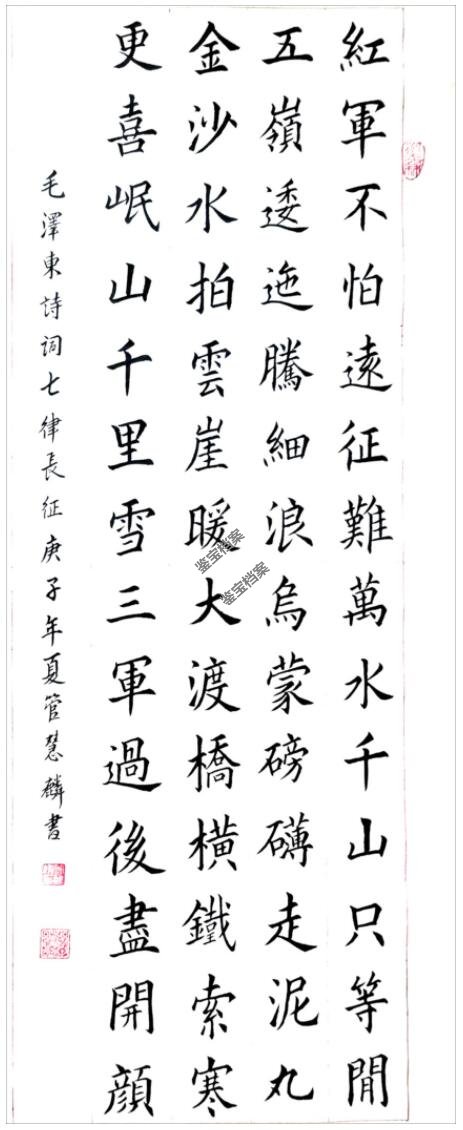 紅軍不怕遠征難萬水千山只等閒
五嶺逶迤騰細浪烏蒙磅礴走泥丸
金沙水拍雲崖暖大渡橋橫鐵索寒
更喜岷山千里雪三軍過後盡開顏
毛澤東詩詞七律長征庚子年夏管慧麟書
鉴宝档案
鉴宝档案